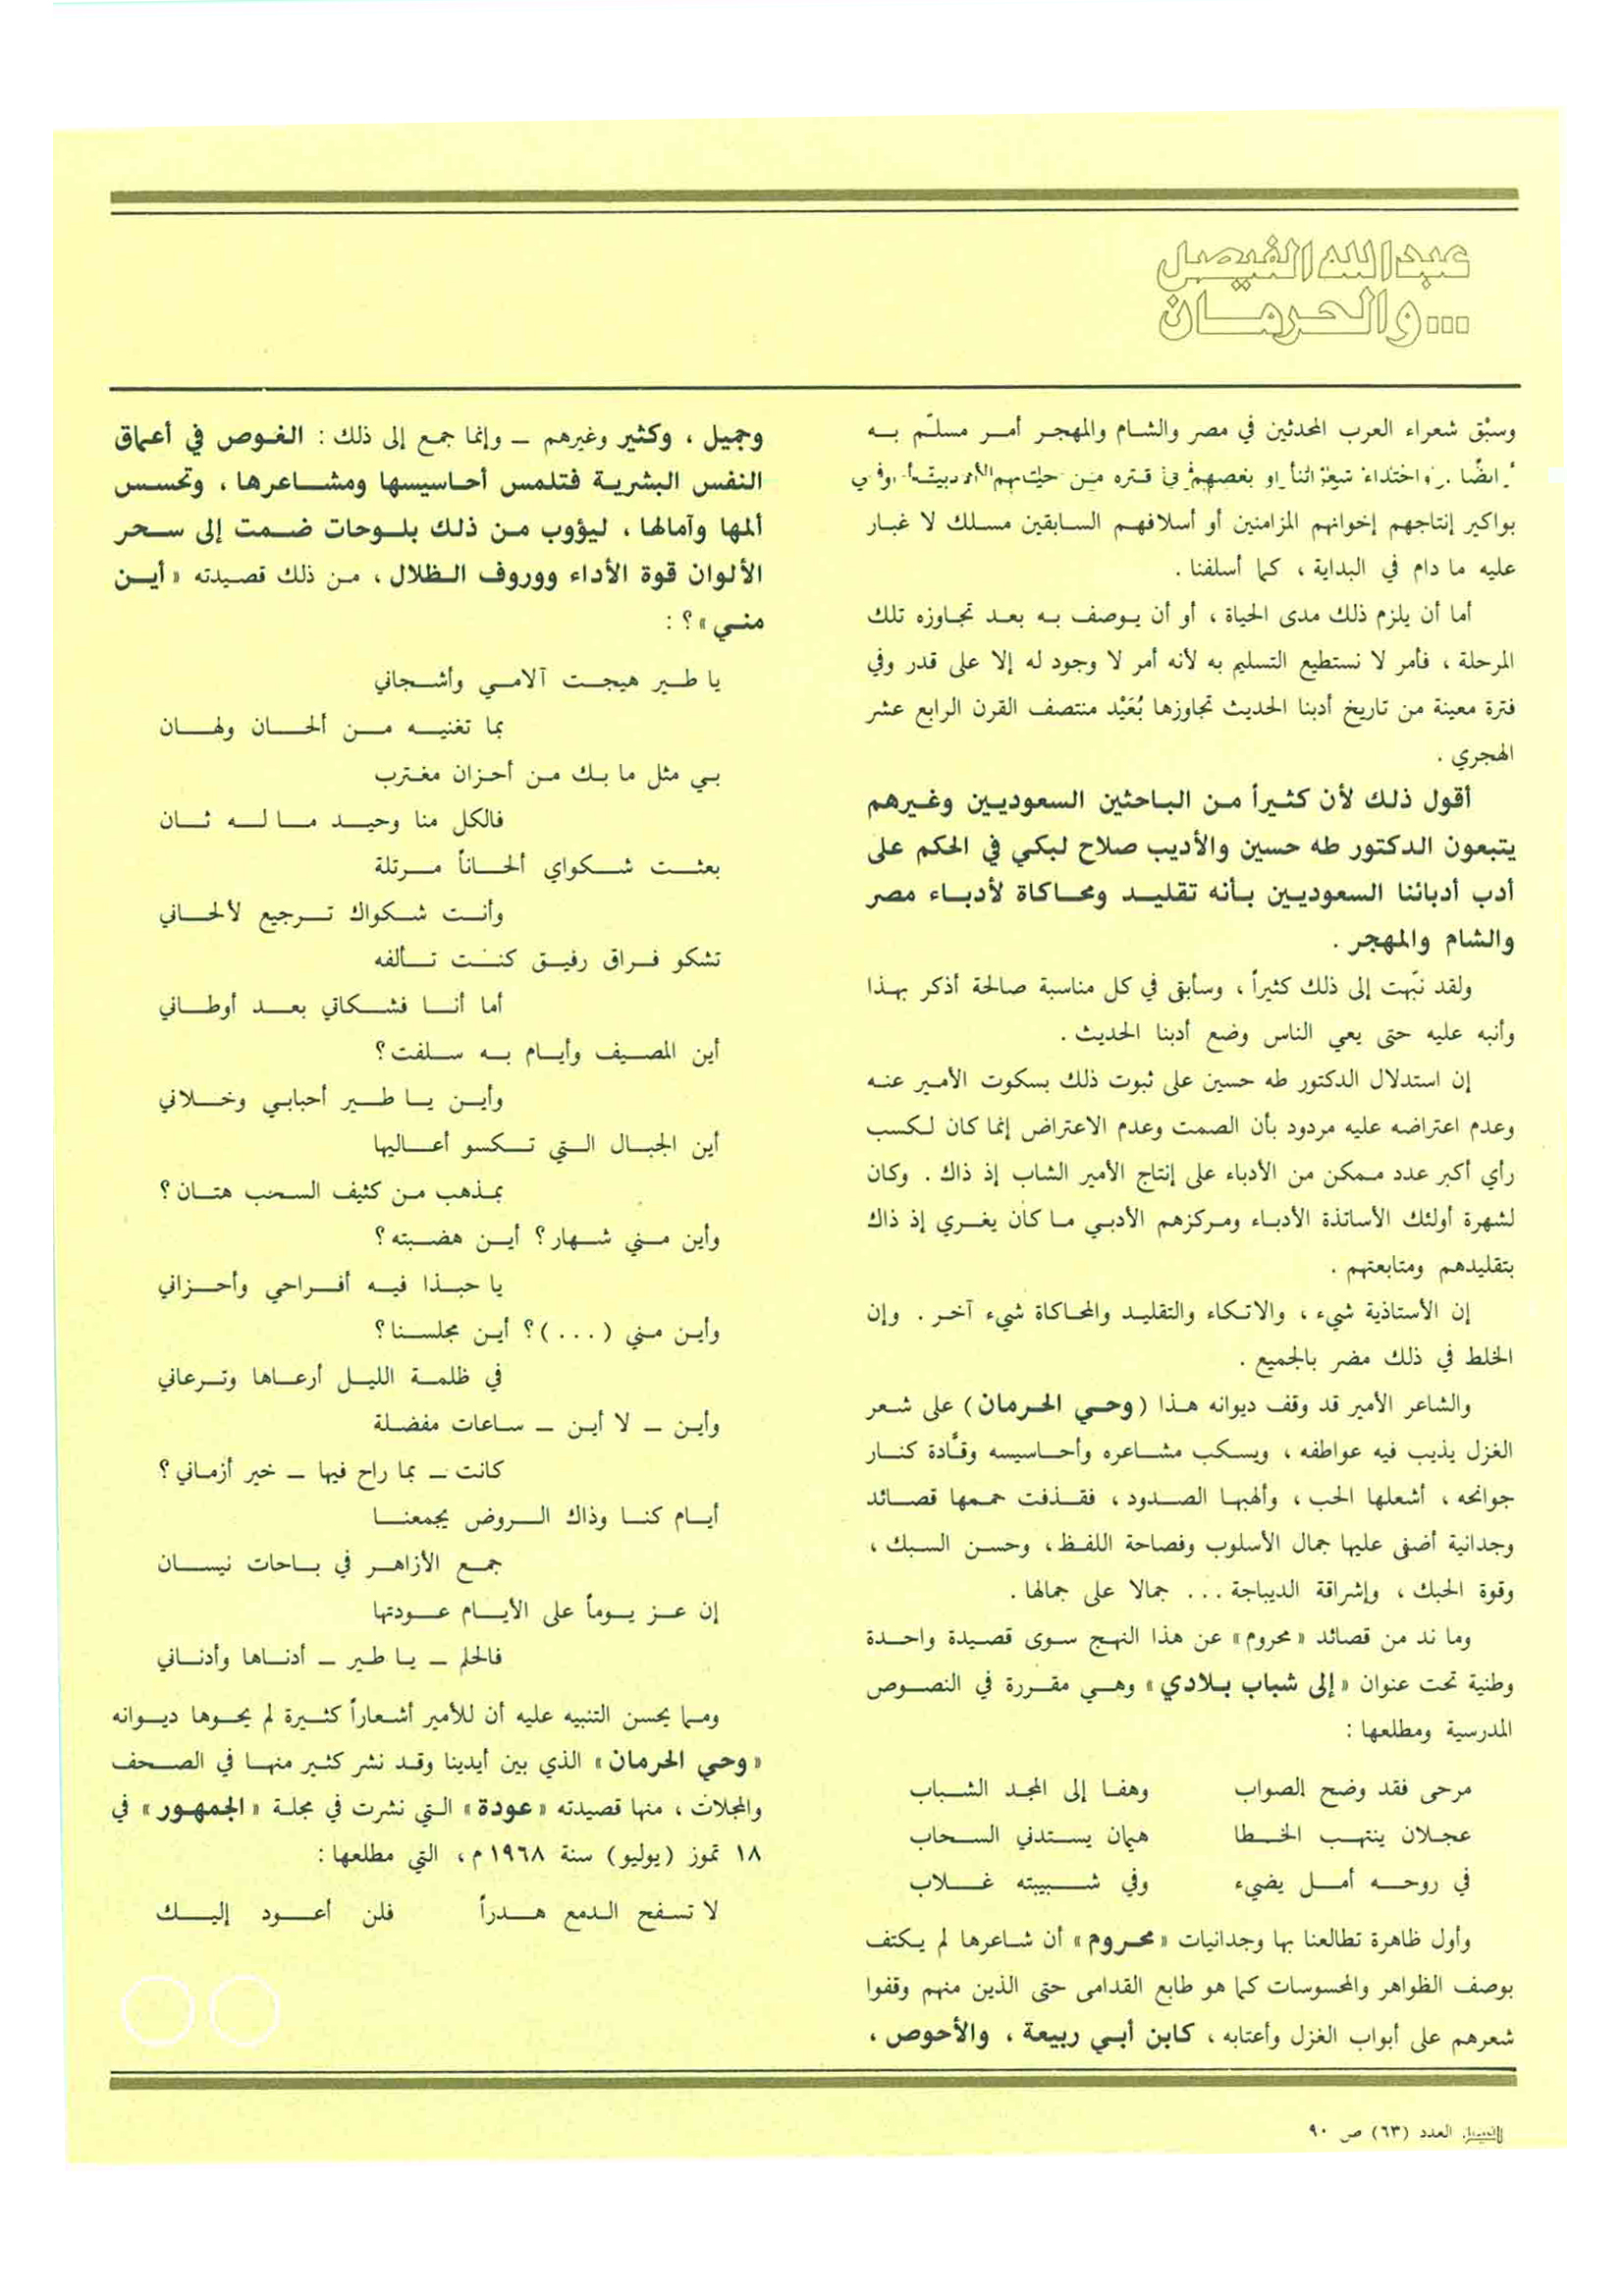 عبدالله الفيصل
...والحرمان
وسبْق شعراء العرب المحدثين في مصر والشام والمهجر أمر مسلّم به
أيضًا . واحتذاء شعرائنا أو بعضهم في فترة من حياتهم الأدبية أو في
بواكير إنتاجهم إخوانهم المزامنين أو أسلافهم السابقين مسلك لا غبار
عليه ما دام في البداية ، كما أسلفنا .
أما أن يلزم ذلك مدى الحياة ، أو أن يوصف به بعد تجاوزه تلك
المرحلة ، فأمر لا نستطيع التسليم به لأنه أمر لا وجود له إلا على قدر وفي
فترة معينة من تاريخ أدبنا الحديث تجاوزها بُعَيْد منتصف القرن الرابع عشر
الهجري .
أقول ذلك لأن كثيراً من الباحثين السعوديين وغيرهم
يتبعون الدكتور طه حسين والأديب صلاح لبكي في الحكم على
أدب أدبائنا السعوديين بأنه تقليد ومحاكاة لأدباء مصر
والشام والمهجر .
ولقد نبّهت إلى ذلك كثيراً ، وسأبقى في كل مناسبة صالحة أذكر بهذا
وأنبه عليه حتى يعي الناس وضع أدبنا الحديث .
إن استدلال الدكتور طه حسين على ثبوت ذلك بسكوت الأمير عنه
وعدم اعتراضه عليه مردود بأن الصمت وعدم الاعتراض إنما كان لكسب
رأي أكبر عدد ممكن من الأدباء على إنتاج الأمير الشاب إذ ذاك . وكان
لشهرة أولئك الأساتذة الأدباء ومركزهم الأدبي ما كان يغري إذ ذاك
بتقليدهم ومتابعتهم .
إن الأستاذية شيء ، والاتكاء والتقليد والمحاكاة شيء آخر . وإن
الخلط في ذلك مضر بالجميع .
والشاعر الأمير قد وقف ديوانه هذا (وحي الحرمان) على شعر
الغزل يذيب فيه عواطفه ، ويسكب مشاعره وأحاسيسه وقّادة كنار
جوانحه ، أشعلها الحب ، وألهبها الصدود ، فقذفت حممها قصائد
وجدانية أضفى عليها جمال الأسلوب وفصاحة اللفظ ، وحسن السبك ،
وقوة الحبك ، وإشراقة الديباجة ... جمالا على جمالها .
وما ند من قصائد «محروم» عن هذا النهج سوى قصيدة واحدة
وطنية تحت عنوان «إلى شباب بلادي» وهي مقررة في النصوص
المدرسية ومطلعها :
مرحى فقد وضح الصواب وهفا إلى المجد الشباب
عجلان ينتهب الخطا هيمان يستدني السحاب
في روحه أمل يضيء وفي شبيبته غلاب
وأول ظاهرة تطالعنا بها وجدانيات «محروم» أن شاعرها لم يكتف
بوصف الظواهر والمحسوسات كما هو طابع القدامى حتى الذين منهم وقفوا
شعرهم على أبواب الغزل وأعتابه ، كابن أبي ربيعة ، والأحوص ،
وجميل ، وكثير وغيرهم ــ وإنما جمع إلى ذلك : الغوص في أعماق
النفس البشرية فتلمس أحاسيسها ومشاعرها ، وتحسس
ألمها وآمالها ، ليؤوب من ذلك بلوحات ضمت إلى سحر
الألوان قوة الأداء ووروف الظلال ، من ذلك قصيدته «أين
مني» ؟ :
يا طير هيجت آلامي وأشجاني
بما تغنيه من ألحان ولهان
بي مثل ما بك من أحزان مغترب
فالكل منا وحيد ما له ثان
بعثت شكواي ألحاناً مرتلة
وأنت شكواك ترجيع لألحاني
تشكو فراق رفيق كنت تألفه
أما أنا فشكاتي بعد أوطاني
أين المصيف وأيام به سلفت ؟
وأين يا طير أحبابي وخلاني
أين الجبال التي تكسو أعاليها
بمذهب من كثيف السحب هتان ؟
وأين مني شهار ؟ أين هضبته ؟
يا حبذا فيه أفراحي وأحزاني
وأين مني (...) ؟ أين مجلسنا ؟
في ظلمة الليل أرعاها وترعاني
وأين ــ لا أين ــ ساعات مفضلة
كانت ــ بما راح فيها ــ خير أزماني ؟
أيام كنا وذاك الروض يجمعنا
جمع الأزاهر في باحات نيسان
إن عز يوماً على الأيام عودتها
فالحلم ــ يا طير ــ أدناها وأدناني
ومما يحسن التنبيه عليه أن للأمير أشعاراً كثيرة لم يحوها ديوانه
«وحي الحرمان» الذي بين أيدينا وقد نشر كثير منها في الصحف
والمجلات ، منها قصيدته «عودة» التي نشرت في مجلة «الجمهور» في
١٨ تموز (يوليو) سنة ١٩٦٨م ، التي مطلعها :
لا تسفح الدمع هدراً فلن أعود إليك
الفيصل العدد (٦٣) ص ٩٠